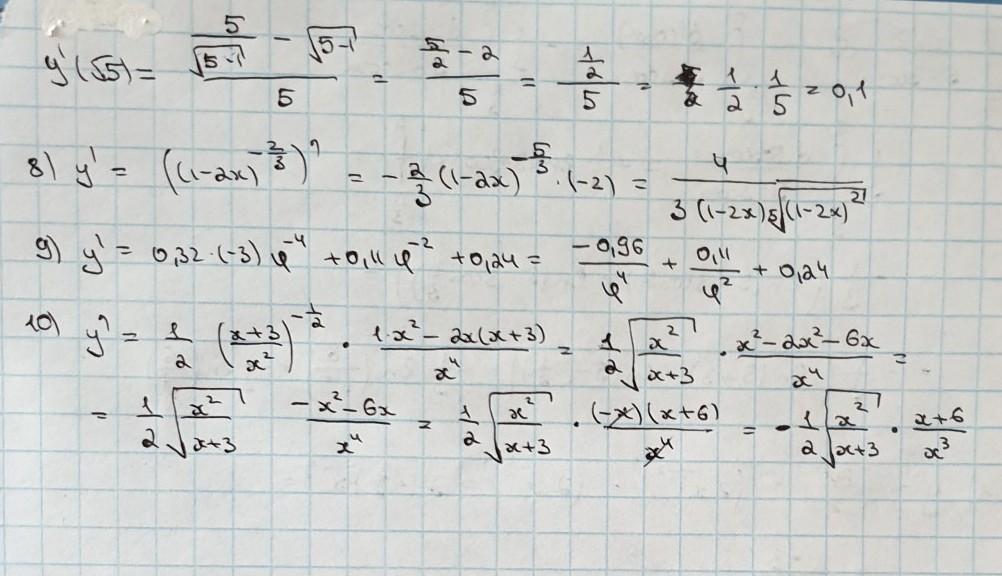 y'(√5) = (5/√(5-1) - √(5-1))/5 = (5/2 - 2)/5 = (1/2)/5 = 1/2 · 1/5 = 0,1
8) y' = ((1-2x)^(-2/3))' = -2/3 (1-2x)^(-5/3) · (-2) = 4/(3(1-2x)∛((1-2x)^2))
9) y' = 0,32·(-3)φ^(-4) + 0,11φ^(-2) + 0,24 = -0,96/φ^4 + 0,11/φ^2 + 0,24
10) y' = 1/2 ((x+3)/x^2)^(-1/2) · (1·x^2 - 2x(x+3))/x^4 = 1/2 √(x^2/(x+3)) · (x^2 - 2x^2 - 6x)/x^4 =
= 1/2 √(x^2/(x+3)) (-x^2 - 6x)/x^4 = 1/2 √(x^2/(x+3)) · (-x)(x+6)/x^4 = -1/2 √(x^2/(x+3)) · (x+6)/x^3